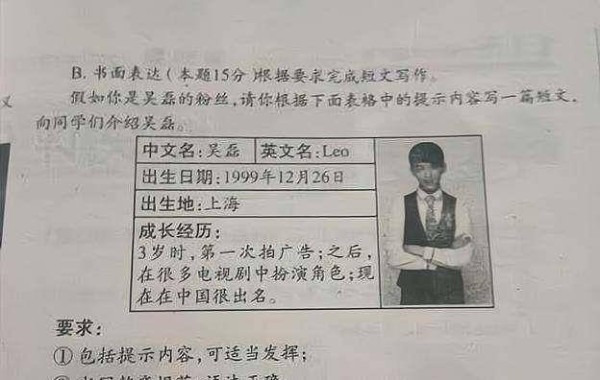 B. 书面表达(本题15分)根据要求完成短文写作。
假如你是吴磊的粉丝,请你根据下面表格中的提示内容写一篇短文,
向同学们介绍吴磊。
中文名:吴磊 英文名:Leo
出生日期:1999年12月26日
出生地:上海
成长经历:
3岁时,第一次拍广告;之后,
在很多电视剧中扮演角色;现
在在中国很出名。
要求:
①包括提示内容,可适当发挥;